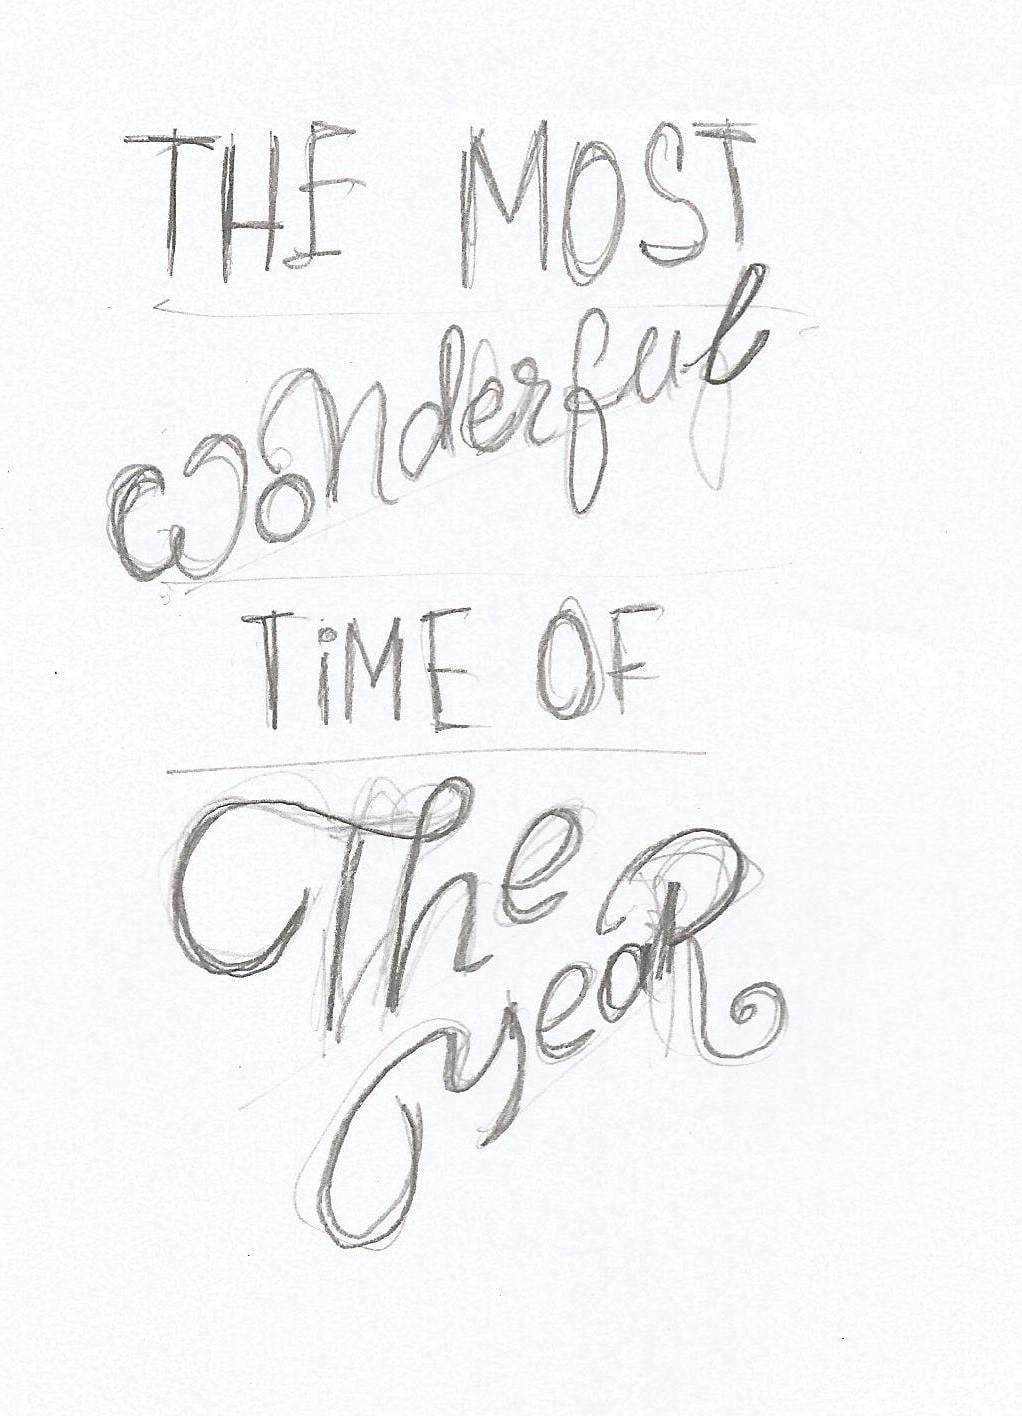 THE MOST
wonderful
TiME OF
The
yeaR